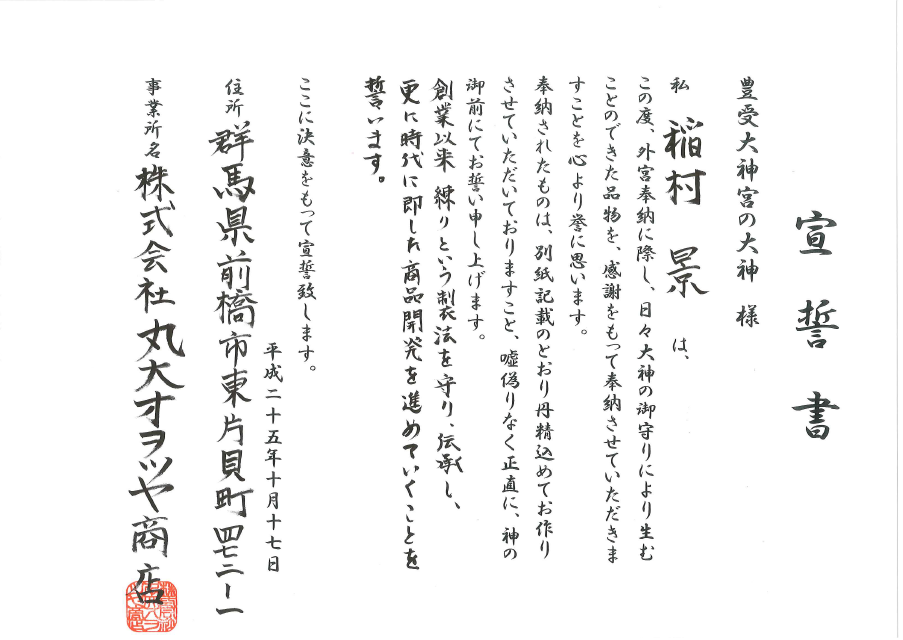 宣誓書
豊受大神宮の大神 様
私 稲村 景 は、
この度、外宮奉納に際し、日々大神の御守りにより生む
ことのできた品物を、感謝をもって奉納させていただきま
すことを心より誉に思います。
奉納されたものは、別紙記載のとおり丹精込めてお作り
させていただいておりますこと、嘘偽りなく正直に、神の
御前にてお誓い申し上げます。
創業以来練りという製法を守り、伝承し、
更に時代に即した商品開発を進めていくことを
誓います。
ここに決意をもって宣誓致します。
平成二十五年十月十七日
住所 群馬県前橋市東片貝町四七二ー一
事業所名 株式会社 丸大オヲツヤ商店